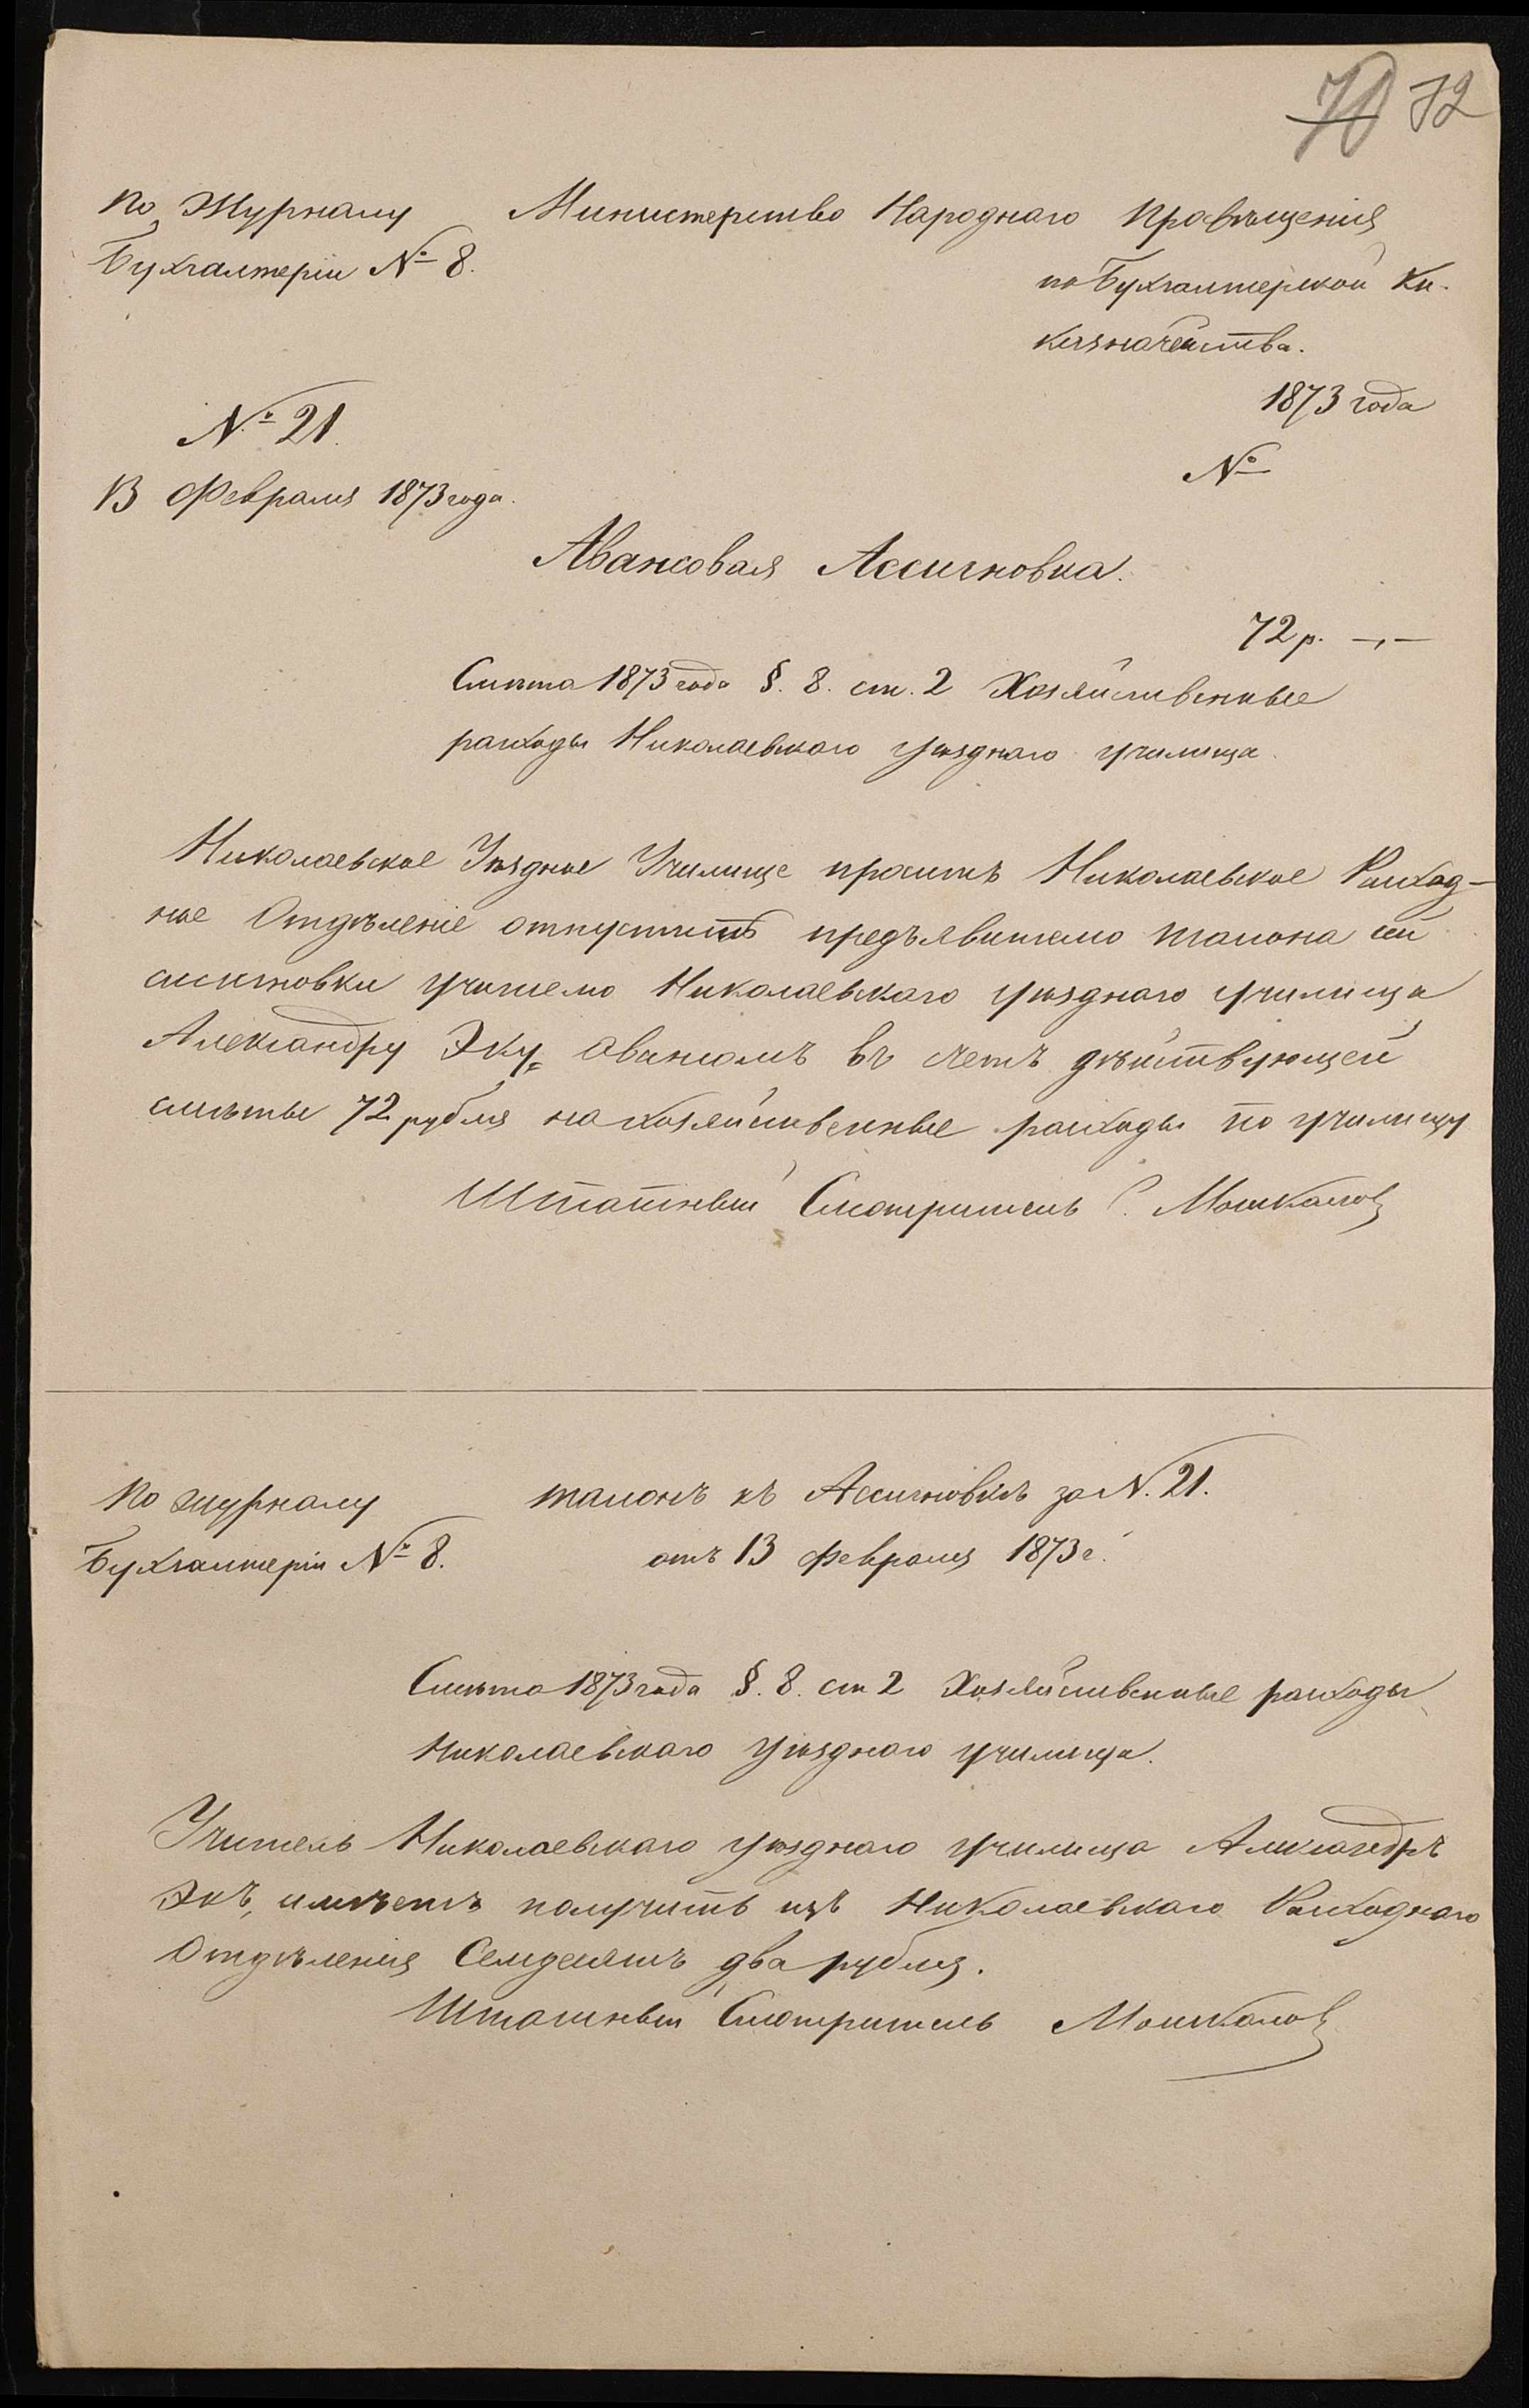 70 72
По Журналу
Бухгалтеріи № 8.
Министерство Народнаго Просвѣщенія
по Бухгалтерской Кн.
казначейства.
1873 года
№
№ 21.
13 Февраля 1873 года.
Авансовая Ассигновка.
72 р. –„–
Смѣта 1873 года §. 8. ст. 2 Хозяйственные
расходы Николаевскаго уѣзднаго училища.
Николаевское Уѣздное Училище проситъ Николаевское Расход-
ное Отдѣленіе отпустить предъявителю талона сей
ассигновки учителю Николаевскаго уѣзднаго училища
Александру Эку, авансомъ въ счетъ дѣйствующей
смѣты 72 рубля на хозяйственные расходы по училищу
Штатный Смотритель С. Мошкалов
По журналу
Бухгалтеріи № 8.
талонъ къ Ассигновкѣ за N. 21.
отъ 13 Февраля 1873 г.
Смѣта 1873 года §. 8. ст 2 Хозяйственные расходы
Николаевскаго уѣзднаго училища.
Учитель Николаевскаго уѣзднаго училища Александръ
Экъ, имѣетъ получить изъ Николаевскаго Расходнаго
Отдѣленія Семдесятъ два рубля.
Штатный Смотритель Мошкалов